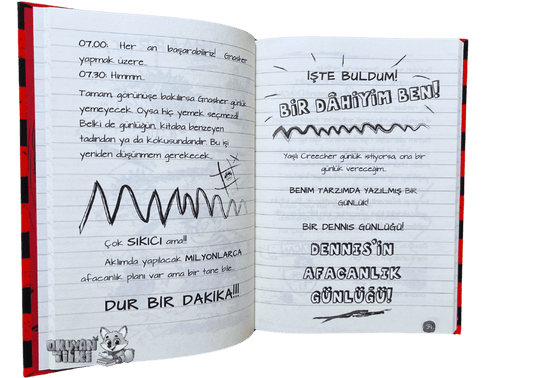 07.00: Her an başarabiliriz! Gnasher
yapmak üzere.
07.30: Hımmm...
Tamam, görünüşe bakılırsa Gnasher günlük
yemeyecek. Oysa hiç yemek seçmezdi!
Belki de günlüğün, kitaba benzeyen
tadından ya da kokusundandır. Bu işi
yeniden düşünmem gerekecek...
Çok SIKICI ama!!!
Aklımda yapılacak MİLYONLARCA
afacanlık planı var ama bir tane bile...
DUR BİR DAKİKA!!!
OKUYAN
TİLKİ
İŞTE BULDUM!
BİR DÂHİYİM BEN!
Yaşlı Creecher günlük istiyorsa, ona bir
günlük vereceğim...
BENİM TARZIMDA YAZILMIŞ BİR
GÜNLÜK!
BİR DENNIS GÜNLÜĞÜ!
DENNIS'İN
AFACANLIK
GÜNLÜĞÜ!